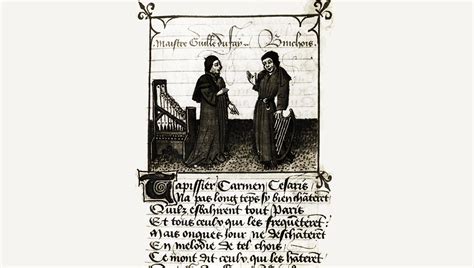 Maistre Guille du fay. Binchois.
Tapissier Carmen Cesaris
Na pas long tēps sy bien chāterēt
Quilz esbahirent tout Paris
Et tous ceulx qui les frequēterēt
Mais onques jour ne deschāterēt
En melodie de tel chois
Ce mont dit ceulx qui les hāterēt